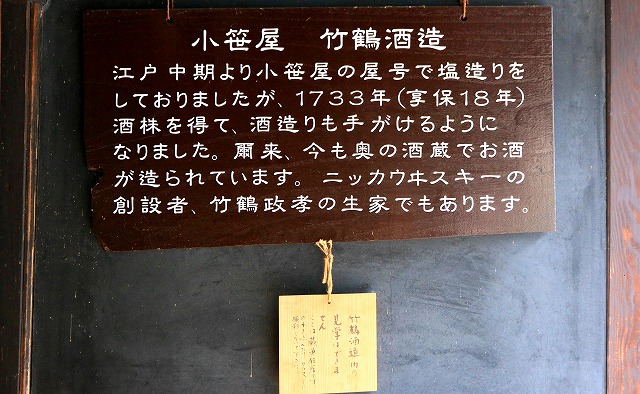 小笹屋　竹鶴酒造
江戸中期より小笹屋の屋号で塩造りを
しておりましたが、1733年(享保18年)
酒株を得て、酒造りも手がけるように
なりました。爾来、今も奥の酒蔵でお酒
が造られています。ニッカウヰスキーの
創設者、竹鶴政孝の生家でもあります。
竹鶴酒造内の
見学はできま
せん